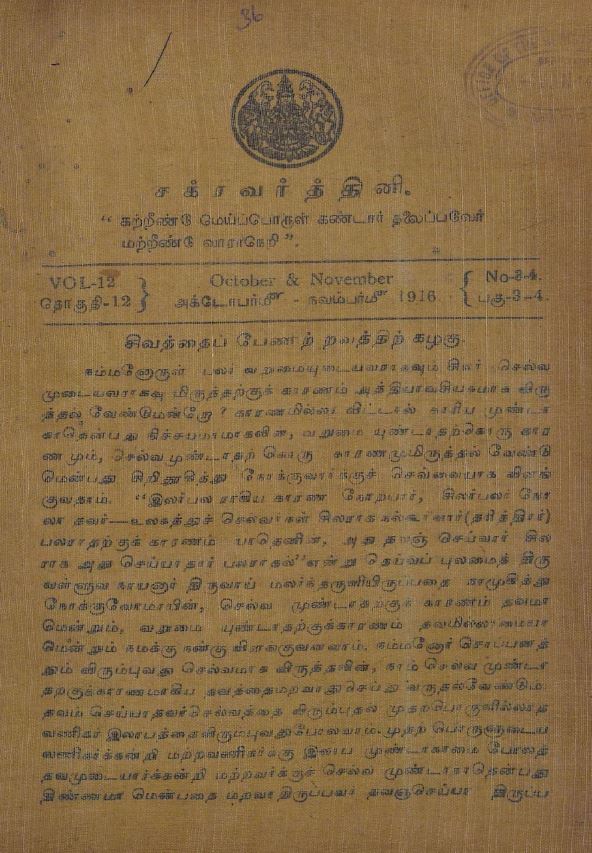 36
சக்ரவர்த்தினி.
“ கற்றீண்டு மெய்ப்பொருள் கண்டார் தலைப்படுவேர்
மற்றீண்டு வாராநெறி ”.
VOL-12 } October & November { No-3-4.
தொகுதி-12 } அக்டோபர்மீ - நவம்பர்மீ 1916 { பகு-3-4.
சிவத்தைப் பேணிற் றவத்திற் கழகு.
நம்மனோருள் பலர் வறுமையுடையவராகவும் சிலர் செல்வ
முடையவராகவு மிருத்தற்குக் காரணம் அத்தியாவசியகமாக விரு
த்தல் வேண்டுமன்றோ? காரணமில்லா விட்டால் காரிய முண்டா
காதென்பது நிச்சயமாமாகலின், வறுமை யுண்டாதற்கொரு கார
ணமும், செல்வமுண்டாதற் கொரு காரணமுமிருத்தல் வேண்டு
மென்பது சிறிதூகித்து நோக்குவார்க்குச் செவ்வையாக விளங்
குவதாம். “இலர்பல ராகிய காரண நோற்பார், சிலர்பலர் நோ
லா தவர்—உலகத்துச் செல்வர்கள் சிலராக நல்கூர்ந்தார்(தரித்திரர்)
பலராதற்குக் காரணம் யாதெனின், அது தவஞ் செய்வார் சில
ராக அது செய்யாதார் பலராகல்” என்று தெய்வப் புலமைத் திரு
வள்ளுவ நாயனார் திருவாய் மலர்ந்தருளியிருப்பதை நாமுகித்து
நோக்குவோமாயின், செல்வ முண்டாதற்குக் காரணம் தவமா
மென்றும், வறுமை யுண்டாதற்குக்காரணம் தவமில்லாமையா
மென்றும் நமக்கு நன்கு விளங்குவனவாம். நம்மனோர் சொப்பனத்
தும் விரும்புவது செல்வமாக விருத்தலின், நாம் செல்வ முண்டா
தற்குக்காரணமாகிய தவத்தைமறவாதுசெய்து வருதல்வேண்டும்.
தவம் செய்யாதவர்செல்வத்தை விரும்புதல் முதற்பொருளில்லாத
வணிகர் இலாபத்தைவிரும்புவதுபோலவாம். முதற் பொருளுடைய
வணிகர்க்கன்றி மற்றவணிகர்க்கு இலாப முண்டாகாமை போலத்
தவமுடையார்க்கன்றி மற்றவர்க்குச் செல்வ முண்டாகாதென்பது
திண்ணமா மென்பதை மறவாதிருப்பவர் தவஞ்செய்யா திருப்ப